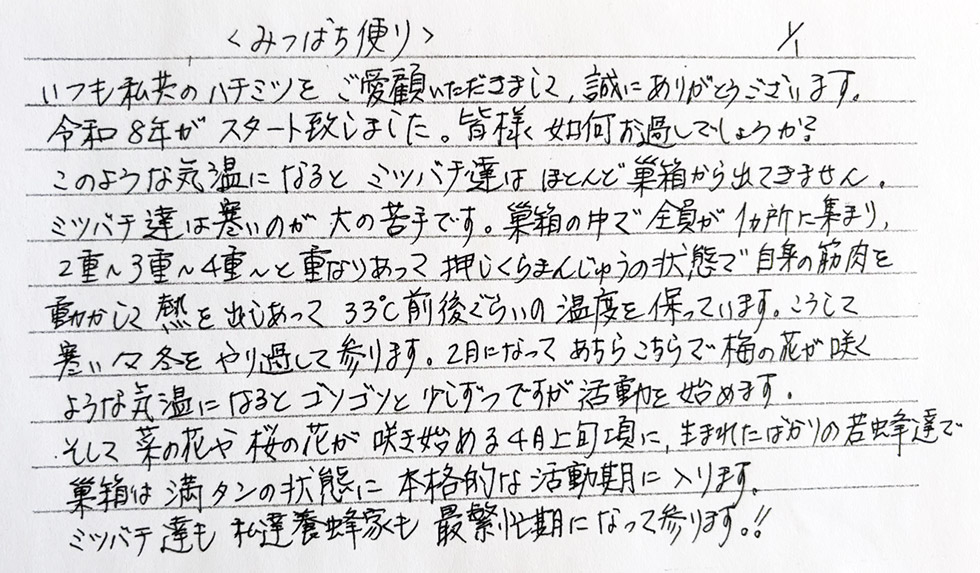 ＜みつばち便り＞ 1/1
いつも私共のハチミツをご愛顧いただきまして、誠にありがとうございます。
令和8年がスタート致しました。皆様如何お過しでしょうか?
このような気温になるとミツバチ達はほとんど巣箱から出てきません。
ミツバチ達は寒いのが大の苦手です。巣箱の中で全員が1カ所に集まり、
2重〜3重〜4重〜と重なりあって押しくらまんじゅうの状態で自身の筋肉を
動かして熱を出しあって33℃前後ぐらいの温度を保っています。こうして
寒い々冬をやり過して参ります。2月になってあちらこちらで梅の花が咲く
ような気温になるとゴソゴソと少しずつですが活動を始めます。
そして菜の花や桜の花が咲き始める4月上旬頃に、生まれたばかりの若蜂達で
巣箱は満タンの状態に本格的な活動期に入ります。
ミツバチ達も私達養蜂家も最繁忙期になって参ります。!!